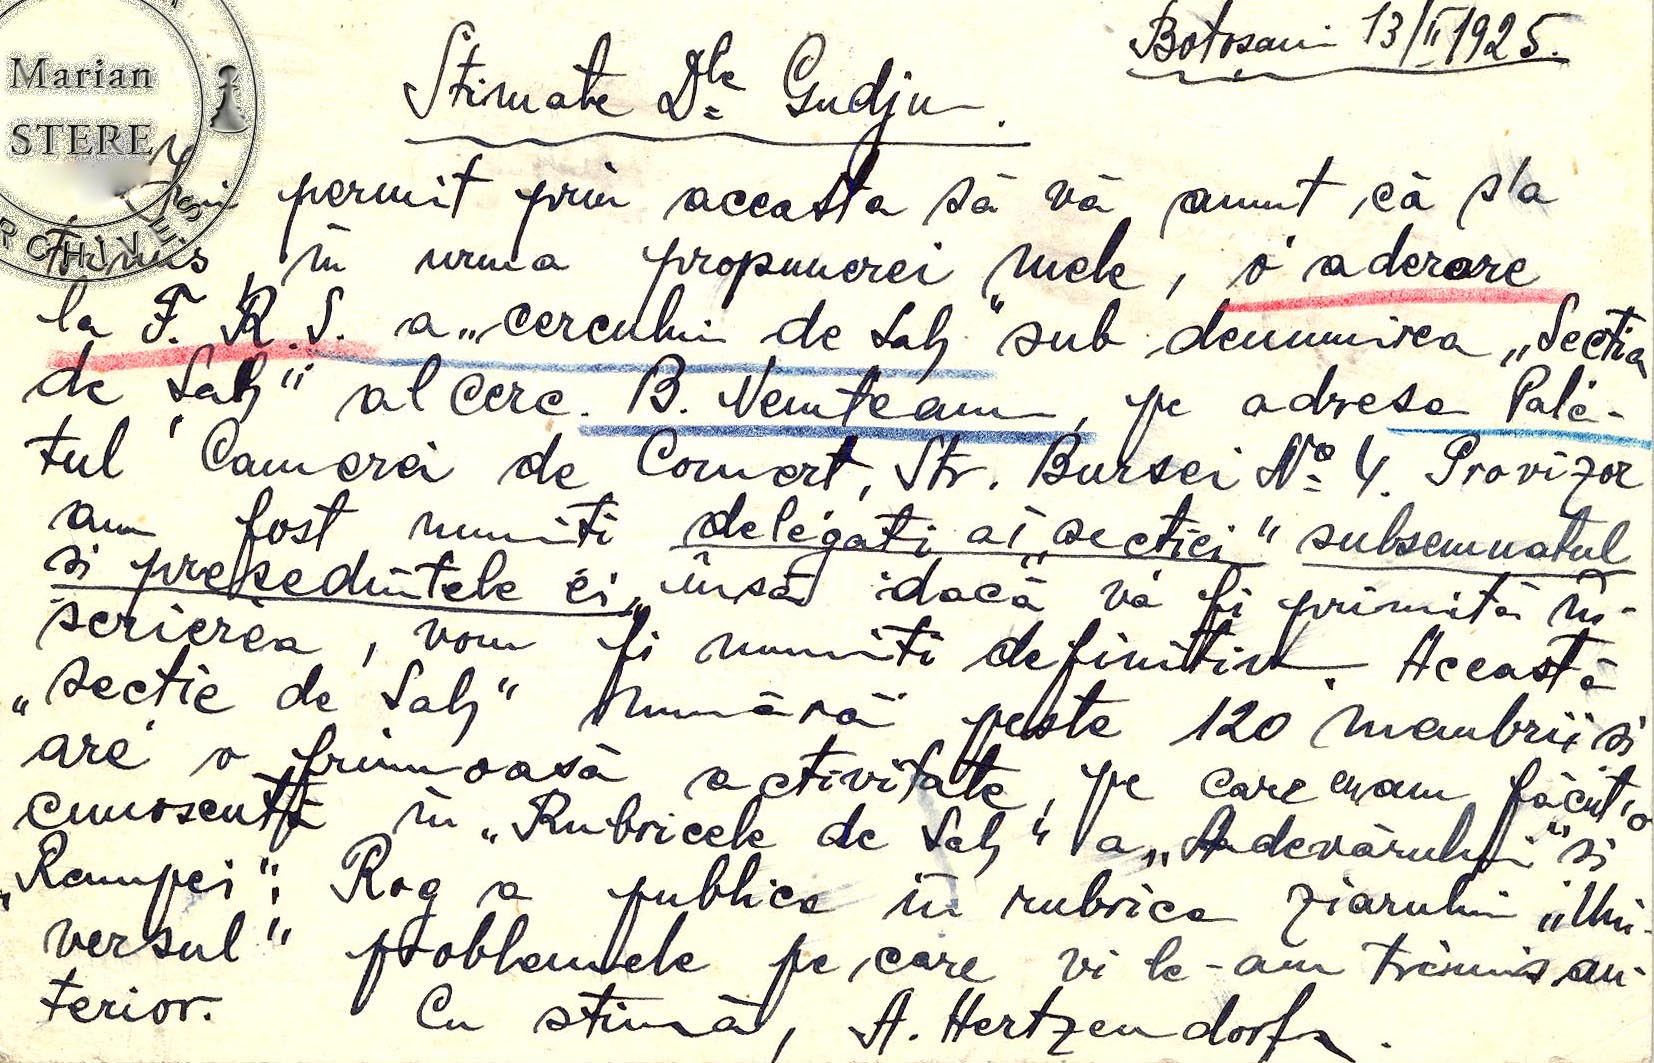 Botosani 13/II 1925.
Marian
STERE
ARCHIVES
Stimate Dle Gudju.
permit prin aceasta să vă anunt, că s'a
trimis, în urma propunerei mele, o aderare
la F. R. S. a „cercului de Sah" sub denumirea „Sectia
de Sah" al cerc. B. Nemteanu, pe adresa Pala-
tul Camerei de Comert, Str. Bursei No 4. Provizor
am fost numiti delegati ai „sectiei" subsemnatul
si presedintele ei, însă dacă va fi primită în-
scrierea, vom fi numiti definitiv. Această
„sectie de Sah" numără peste 120 membrii si
are o frumoasă activitate, pe care am făcut'o
cunoscută în „Rubricele de Sah" a „Adevărului" si
„Rampei". Rog a publica în rubrica ziarului „Uni-
versul" problemele pe care vi le-am trimis an-
terior. Cu stimă, A. Hertzendorf.